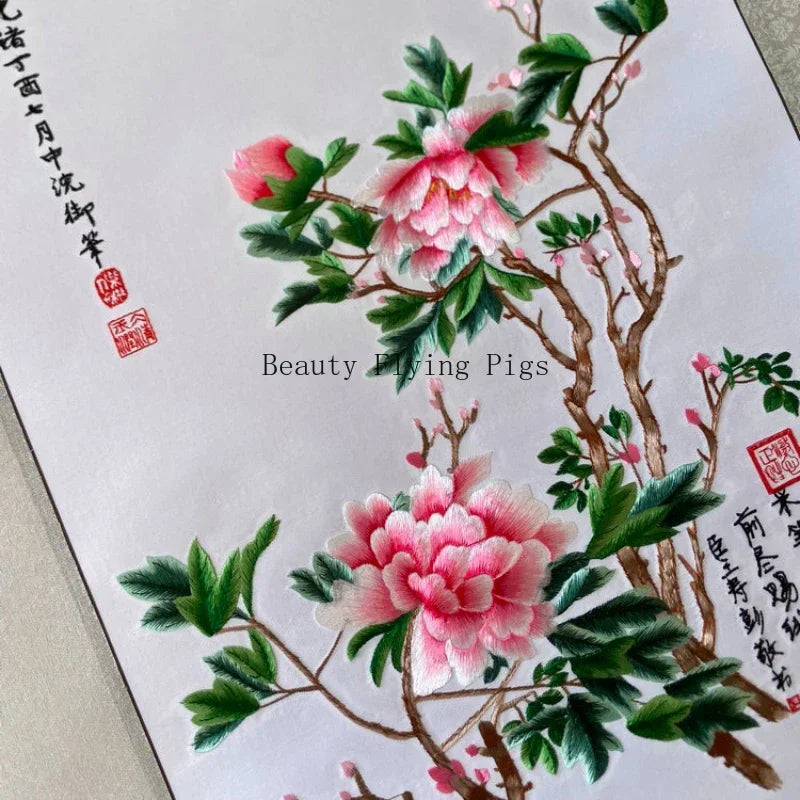 光绪丁酉七月中浣御筆
Beauty Flying Pigs
前尽赐
臣王寿彭敬书